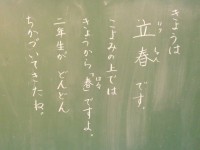 きょうは
立春です。
こよみの上では
きょうから春ですよ。
二年生が どんどん
ちかづいてきたね。